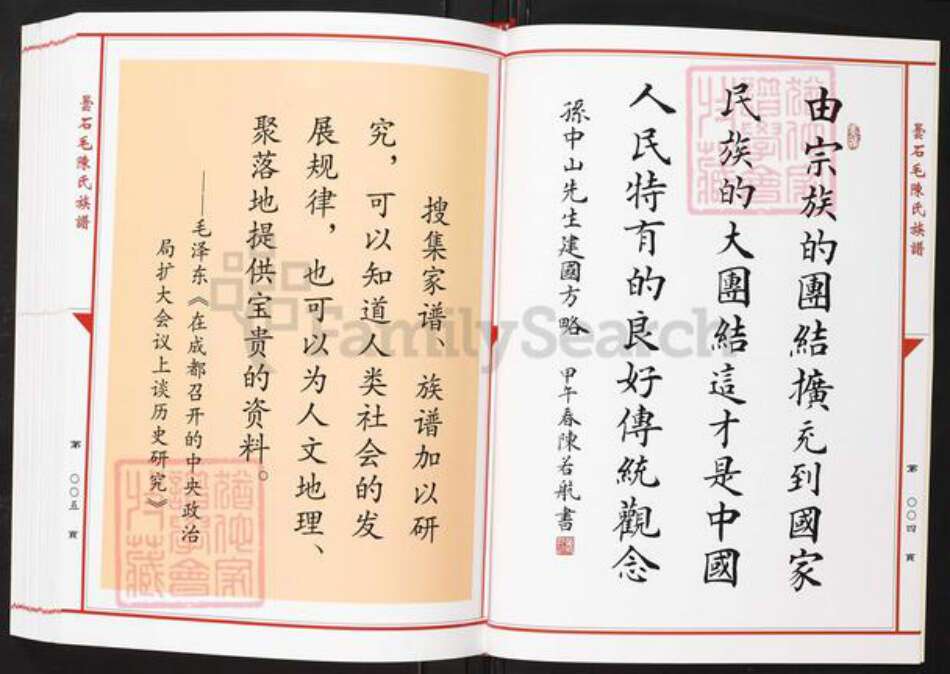 曇石毛陳氏族譜
第 〇〇四 頁
由宗族的團結擴充到國家
民族的大團結這才是中國
人民特有的良好傳統觀念
孫中山先生建國方略 甲午春陳若航書
搜集家谱、族谱加以研
究，可以知道人类社会的发
展规律，也可以为人文地理、
聚落地提供宝贵的资料。
——毛泽东《在成都召开的中央政治
局扩大会议上谈历史研究》
曇石毛陳氏族譜
第 〇〇五 頁
FamilySearch